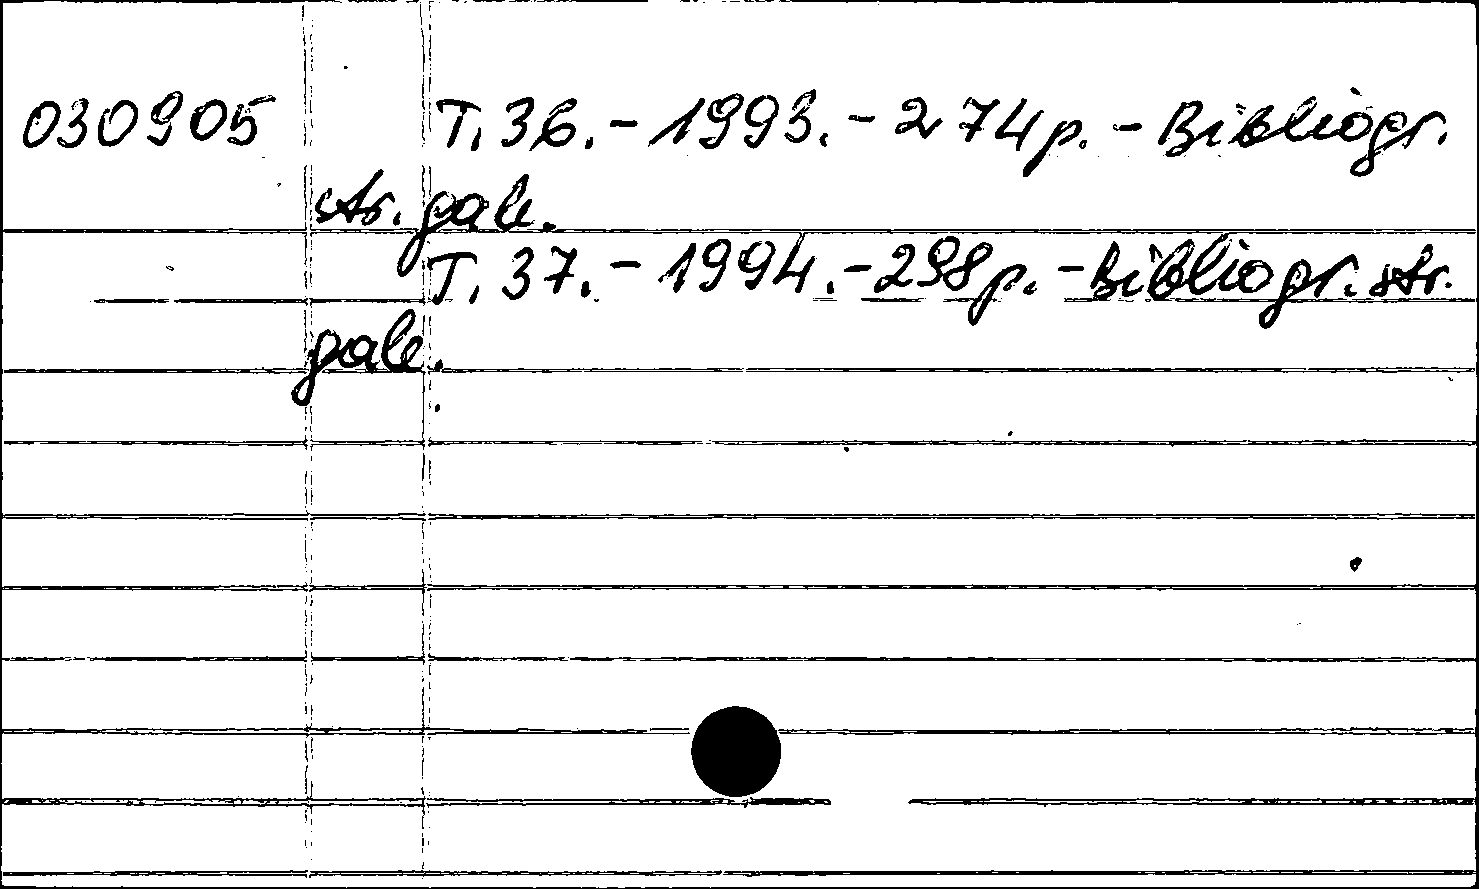 030905 T. 36. - 1993. - 274 p. - Bibliogr.
str. gale.
T. 37. - 1994. - 298 p. - Bibliogr. str.
gale.